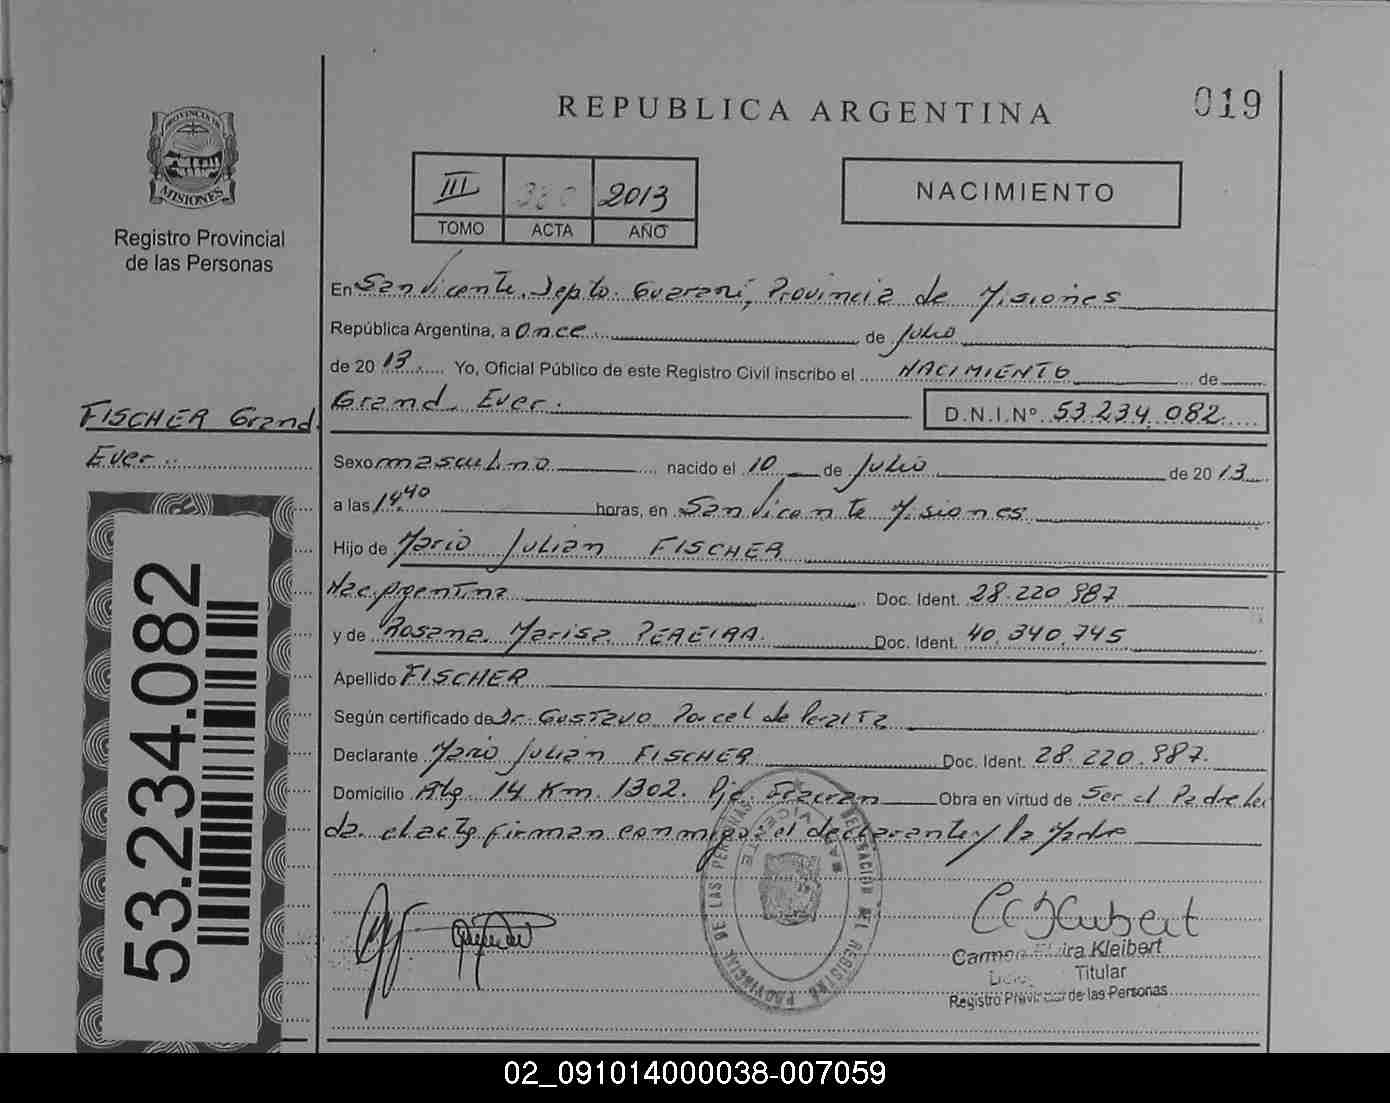 019
REPUBLICA ARGENTINA
PROVINCIA DE
MISIONES
Registro Provincial
de las Personas
III 380 2013
TOMO ACTA AÑO
NACIMIENTO
En San Vicente, Depto. Guaraní, Provincia de Misiones
República Argentina, a Once de Julio
de 2013 Yo, Oficial Público de este Registro Civil inscribo el NACIMIENTO de
Grand, Ever. D.N.I.Nº 53.234.082
FISCHER Grand,
Ever
Sexo masculino nacido el 10 de Julio de 2013
a las 14,40 horas, en San Vicente Misiones
Hijo de Mario Julian FISCHER
Nac. Argentina Doc. Ident. 28.220.987
y de Rosana Marisa PEREIRA Doc. Ident. 40.340.745
Apellido FISCHER
Según certificado de Dr. Gustavo de Peralta
Declarante Mario Julian FISCHER Doc. Ident. 28.220.987.
Domicilio 14 Km. 1302. Pje. Obra en virtud de Ser el Padre Lei
da el acta firman conmigo el declarante y la Madre
53.234.082
DELEGACION DEL REGISTRO PROVINCIAL DE LAS PERSONAS
SAN VICENTE
Carmen Elvira Kleibert
Titular
Registro Provincial de las Personas
02_091014000038-007059